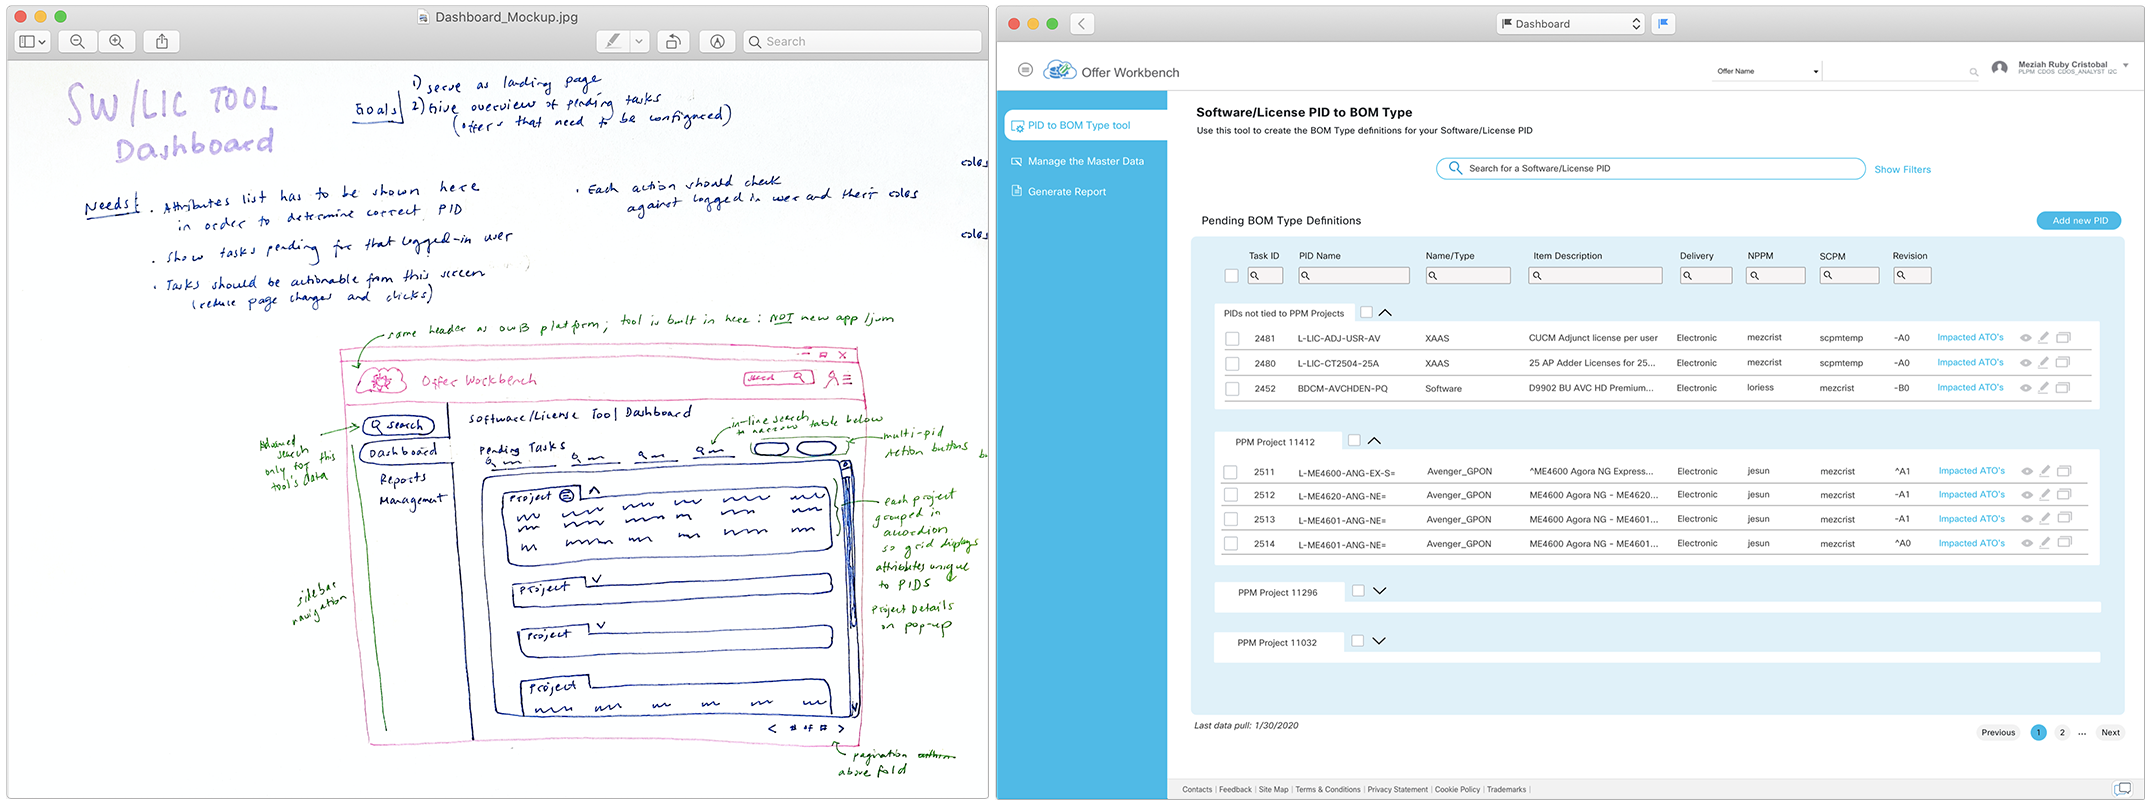 Dashboard_Mockup.jpg
Search
SW/LIC TOOL
Dashboard
Goals
1) serve as landing page
2) Give overview of pending tasks
(offers that need to be configured)
Needs:
· Attributes list has to be shown here
in order to determine correct PID
· Show tasks pending for that logged-in user
· Tasks should be actionable from this screen
(reduce page changes and clicks)
· Each action should check
against logged in user and their roles
roles
roles
same header as OWB platform; tool is built in here: NOT new app/jum
Offer Workbench
search
Search
Dashboard
Reports
Management
Software/License Tool Dashboard
Pending Tasks
Project
Project
Project
Project
< # of # >
Advanced
search
only for this
tool's data
sidebar
navigation
in-line search
to narrow table below
multi-pid
action buttons
each project
grouped in
accordion
so grid displays
attributes unique
to PIDS
Project Details
on pop-up
pagination
above fold
Dashboard
Offer Workbench
Offer Name
Meziah Ruby Cristobal
PLPM CDOS CDOS_ANALYST I2C
PID to BOM Type tool
Manage the Master Data
Generate Report
Software/License PID to BOM Type
Use this tool to create the BOM Type definitions for your Software/License PID
Search for a Software/License PID
Show Filters
Pending BOM Type Definitions
Add new PID
Task ID PID Name Name/Type Item Description Delivery NPPM SCPM Revision
PIDs not tied to PPM Projects
2481 L-LIC-ADJ-USR-AV XAAS CUCM Adjunct license per user Electronic mezcrist scpmtemp -A0 Impacted ATO's
2480 L-LIC-CT2504-25A XAAS 25 AP Adder Licenses for 25... Electronic mezcrist scpmtemp -A0 Impacted ATO's
2452 BDCM-AVCHDEN-PQ Software D9902 BU AVC HD Premium... Electronic loriess mezcrist -B0 Impacted ATO's
PPM Project 11412
2511 L-ME4600-ANG-EX-S= Avenger_GPON ^ME4600 Agora NG Express... Electronic jesun mezcrist ^A1 Impacted ATO's
2512 L-ME4620-ANG-NE= Avenger_GPON ME4600 Agora NG - ME4620... Electronic jesun mezcrist -A1 Impacted ATO's
2513 L-ME4601-ANG-NE= Avenger_GPON ME4600 Agora NG - ME4601... Electronic jesun mezcrist -A1 Impacted ATO's
2514 L-ME4601-ANG-NE= Avenger_GPON ME4600 Agora NG - ME4601... Electronic jesun mezcrist ^A0 Impacted ATO's
PPM Project 11296
PPM Project 11032
Last data pull: 1/30/2020
Previous 1 2 ... Next
Contacts | Feedback | Site Map | Terms & Conditions | Privacy Statement | Cookie Policy | Trademarks |